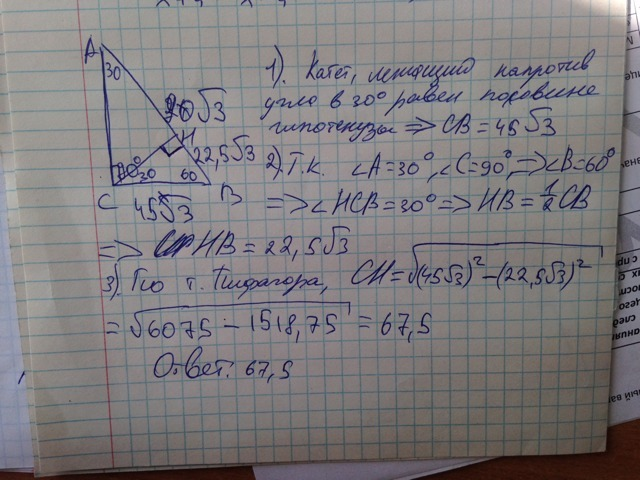 A
30
90√3
H
22,5√3
90°
30
60
C
B
45√3
1). Катет, лежащий напротив
угла в 30° равен половине
гипотенузы ⇒ CB = 45√3
2). Т.к. ∠A=30°, ∠C=90°, ⇒ ∠B=60°
⇒ ∠HCB=30° ⇒ HB = 1/2 CB
⇒ HB = 22,5√3
3). По т. Пифагора, CH = √(45√3)² − (22,5√3)²
= √6075 − 1518,75 = 67,5
Ответ: 67,5